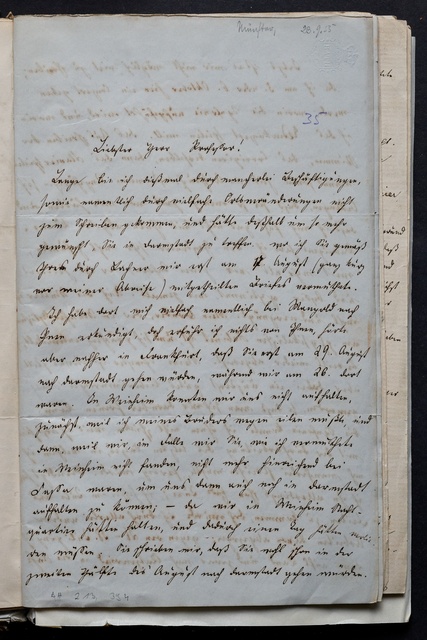 Münster, 28.9.55
35
Liebster Herr Professor!
Lange bin ich dießmal durch mancherlei Beschäftigungen,
sowie namentlich durch vielfache Ortsveränderungen nicht
zum Schreiben gekommen, und hätte deßhalb um so mehr
gewünscht, Sie in Darmstadt zu treffen, wo ich Sie gemäß
Ihres durch mir erst am August (ganz kurz
vor meiner Abreise) mitgetheilten Briefes vermuthete.
Ich habe dort mich vielfach namentlich bei Mangold nach
Ihnen erkundigt, doch erfuhr ich nichts von Ihnen, hörte
aber nachher in Frankfurt, daß Sie erst am 29. August
nach Darmstadt gehen würden, während wir am 26. dort
waren. In Weinheim konnten wir uns nicht aufhalten,
zunächst, weil ich meines Bruders wegen eilen mußte, und
dann, weil wir, im Falle wir Sie, wie ich vermuthete
in Weinheim nicht fanden, nicht mehr hinreichend bei
Cassa waren, um uns dann auch noch in Darmstadt
aufhalten zu können; – da wir in Weinheim Nacht-
quartier hätten halten, und dadurch einen Tag hätten verlie-
ren müssen. Sie schrieben mir, daß Sie wohl schon in der
zweiten Hälfte des August nach Darmstadt gehen würden.